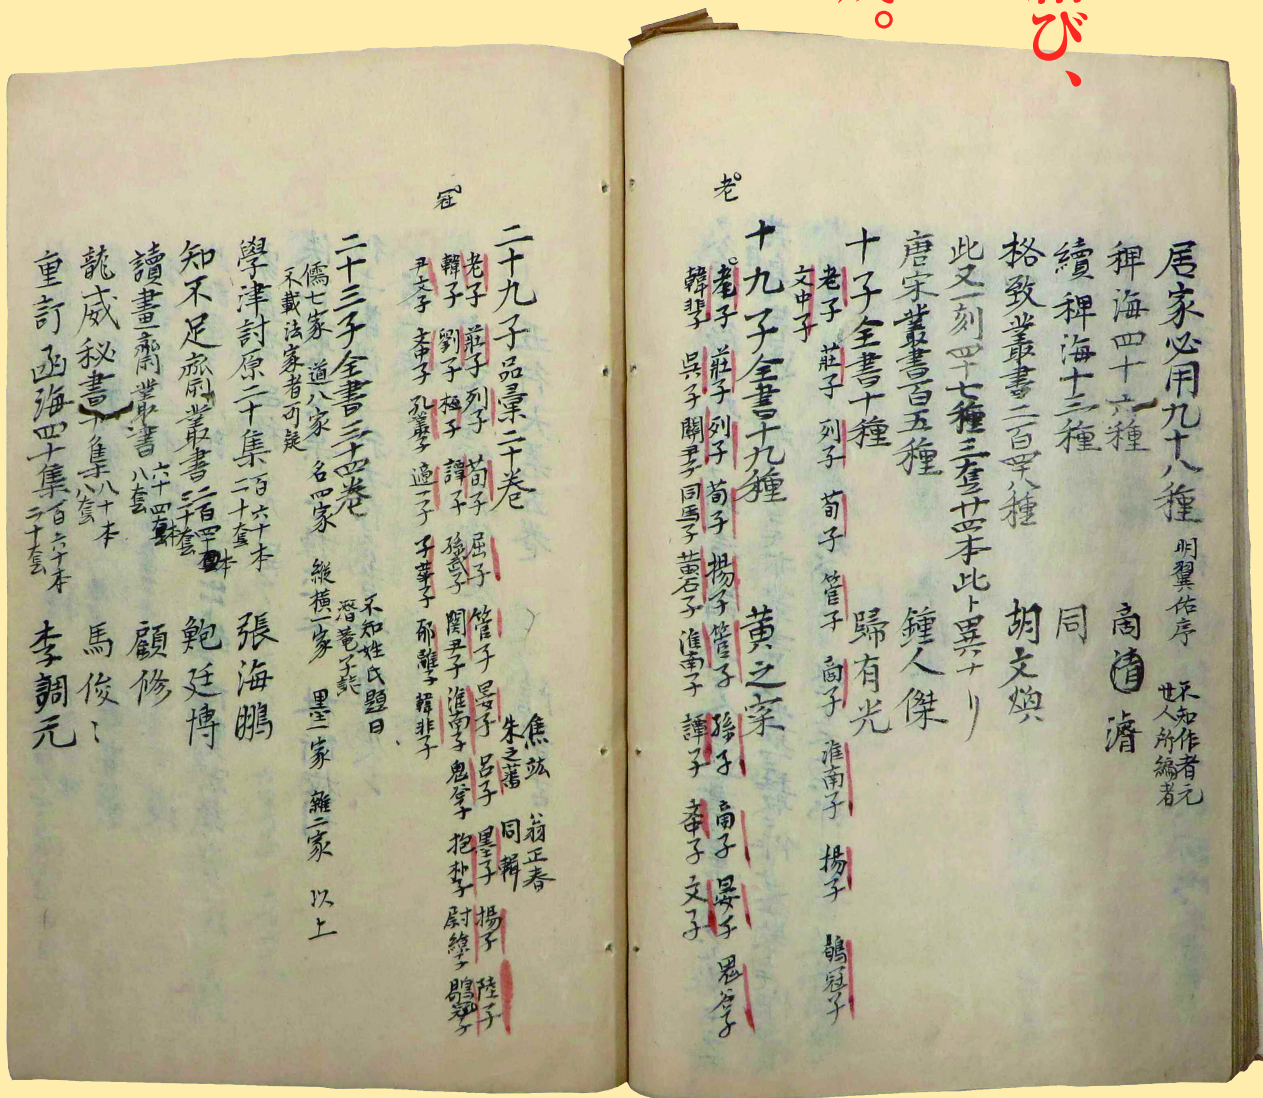 び、
。
居家必用九十八種 明翼佑序 不知作者元
世人所編者
稗海四十六種 商濬
續稗海十三種 同
格致叢書二百四十八種 胡文煥
此又一刻四十七種三套廿四本此ト異ナリ
唐宋叢書百五種 鍾人傑
十子全書十種 歸有光
老子 莊子 列子 荀子 管子 商子 淮南子 揚子 鶡冠子
文中子
老
十九子全書十九種 黄之寀
老子 莊子 列子 荀子 揚子 管子 孫子 商子 晏子 鬼谷子
韓非子 吳子 關尹子 司馬子 黄石子 淮南子 譚子 文子
冠
二十九子品彙二十卷 焦竑 翁正春
朱之蕃 同輯
老子 莊子 列子 荀子 屈子 管子 晏子 呂子 墨子 揚子 陸子
韓子 劉子 譚子 孫武子 関尹子 淮南子 鬼谷子 抱朴子 尉繚子 鶡冠子
尹文子 子華子 韓非子
不知姓氏題曰
二十三子全書三十四卷
儒七家 道八家 名四家 縱横一家 墨一家 雜二家 以上
不載法家者可疑
學津討原二十集 百六十本
二十套 張海鵬
知不足齋叢書 二百四十本
三十套 鮑廷博
讀畫齋叢書 六十四本
八套 顧修
龍威秘書十集 八十本
八套 馬俊
重訂函海四十集 百六十本
二十套 李調元